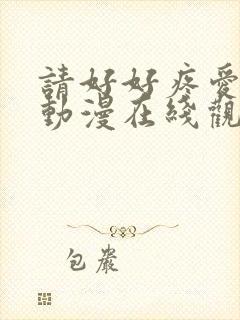 請好好疼愛
動漫在綫觀
包巖